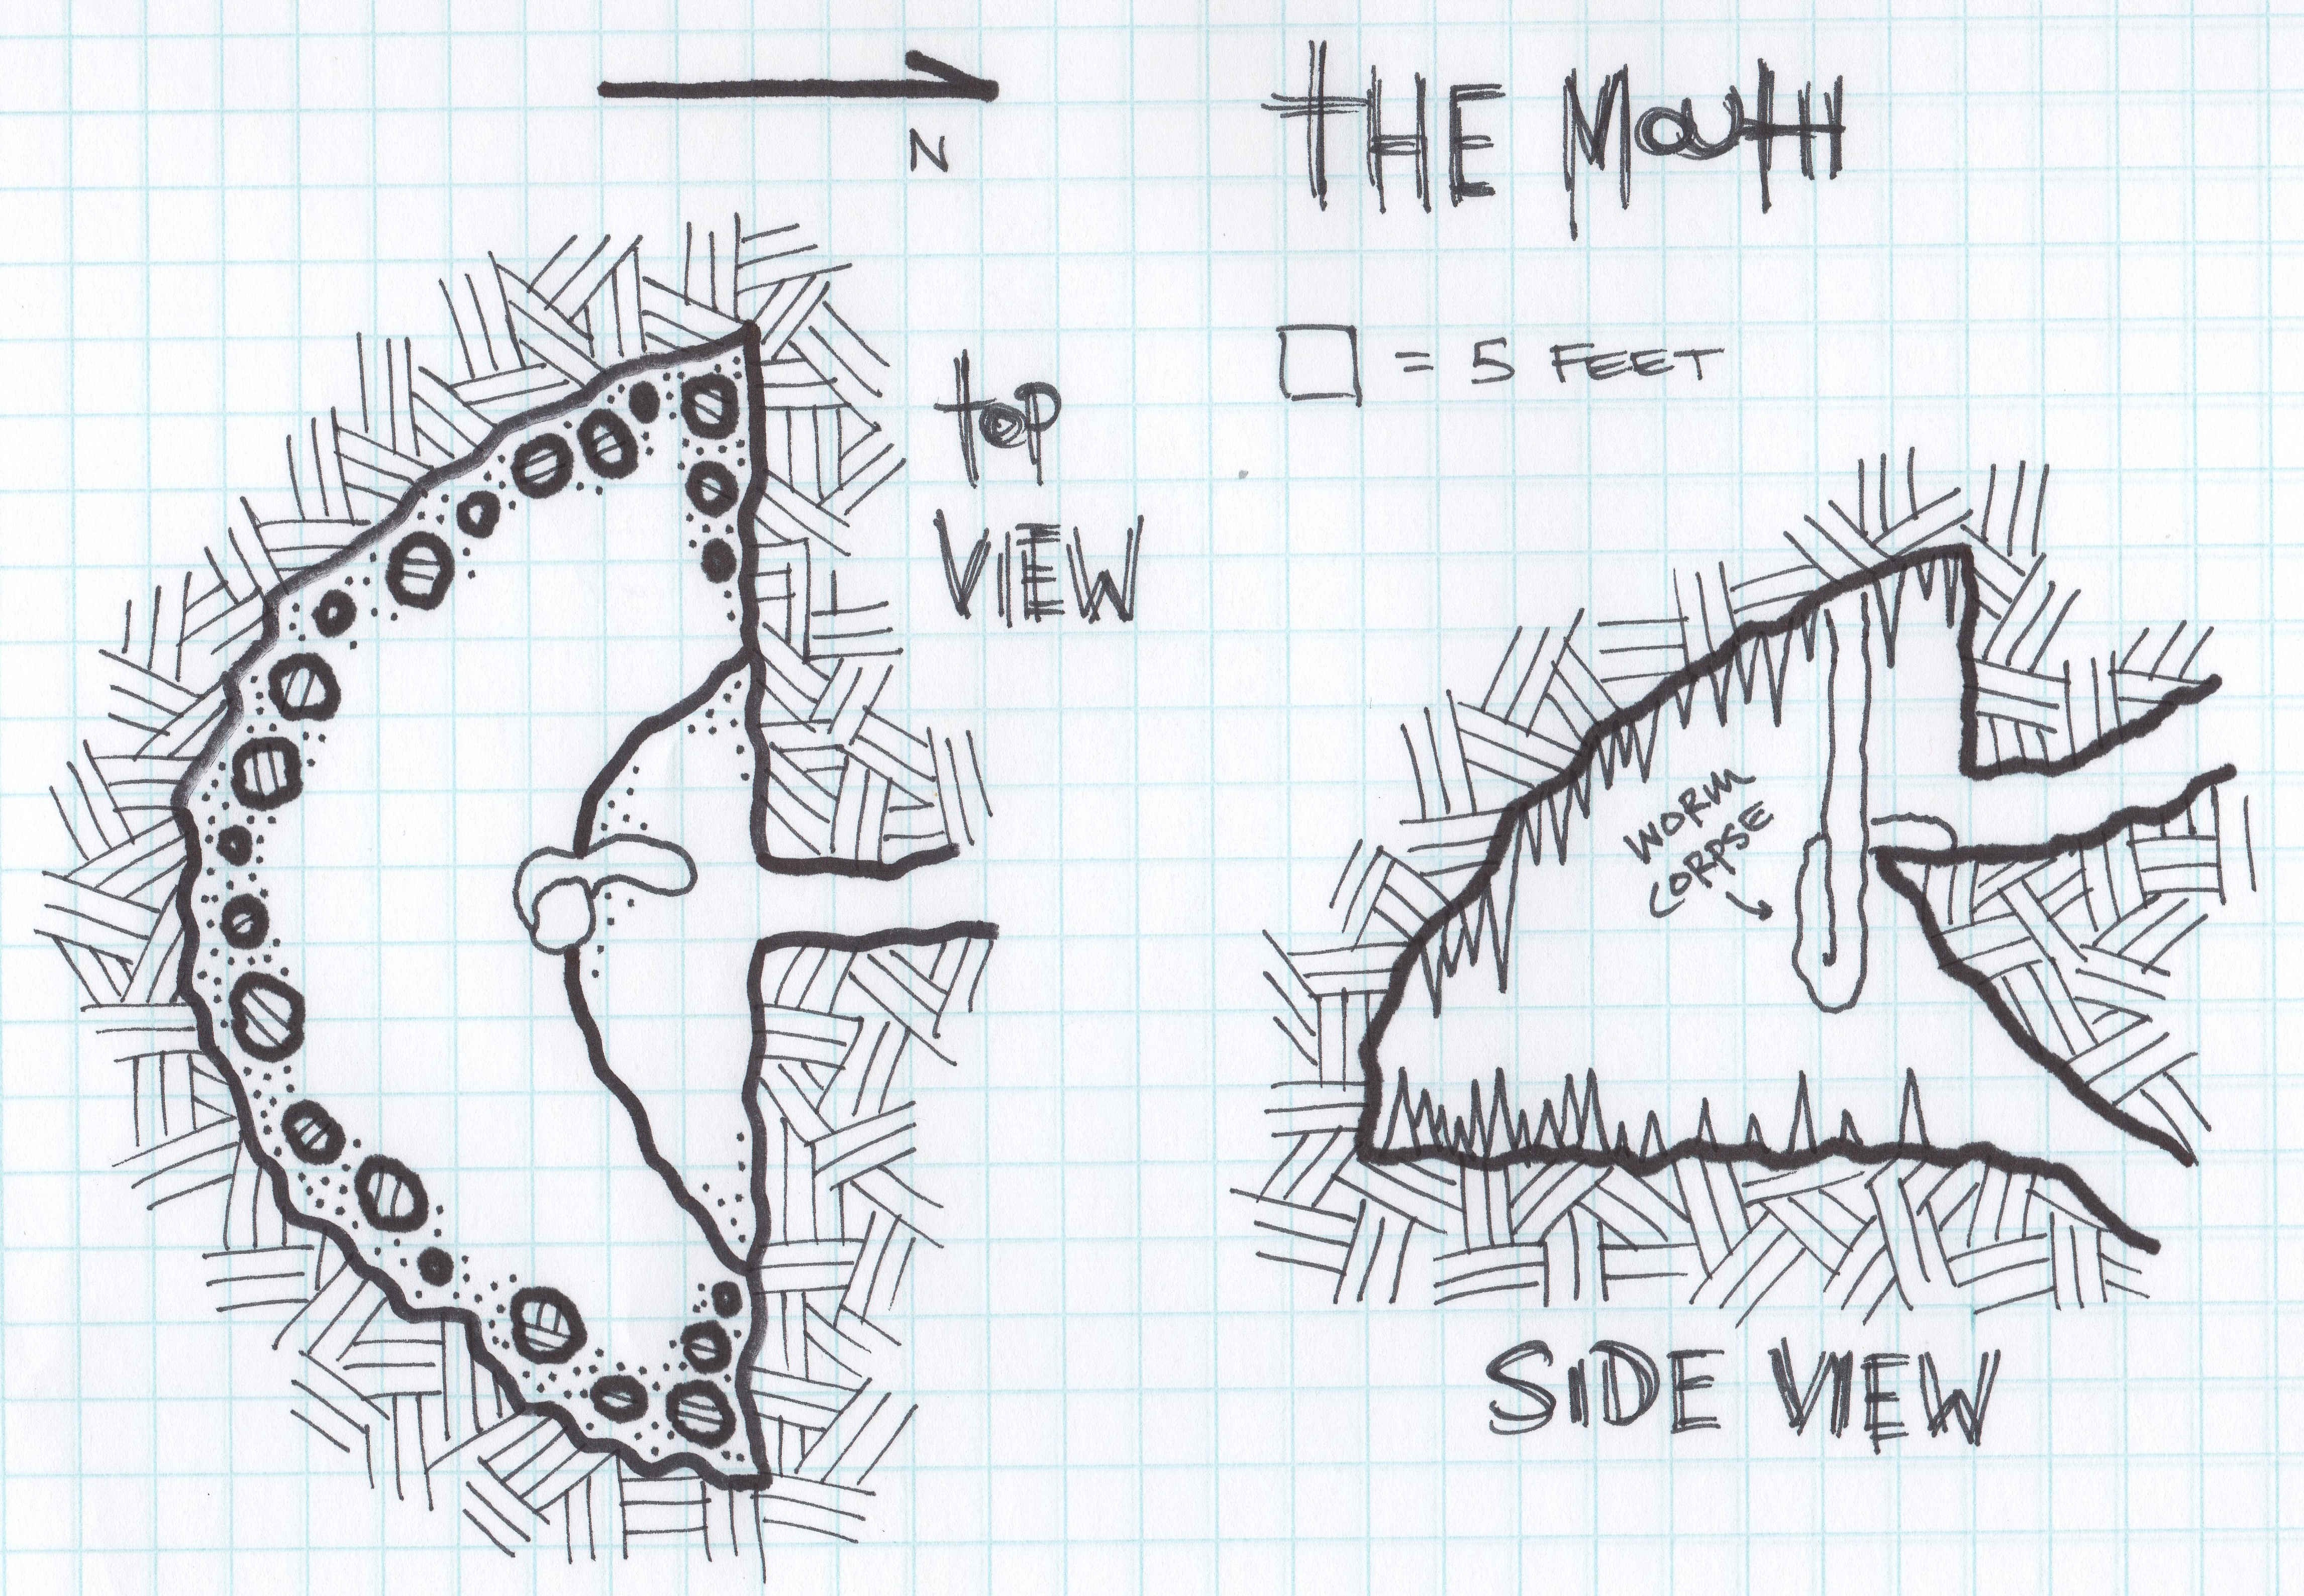 N
THE MOUTH
= 5 FEET
TOP
VIEW
WORM
CORPSE
SIDE VIEW